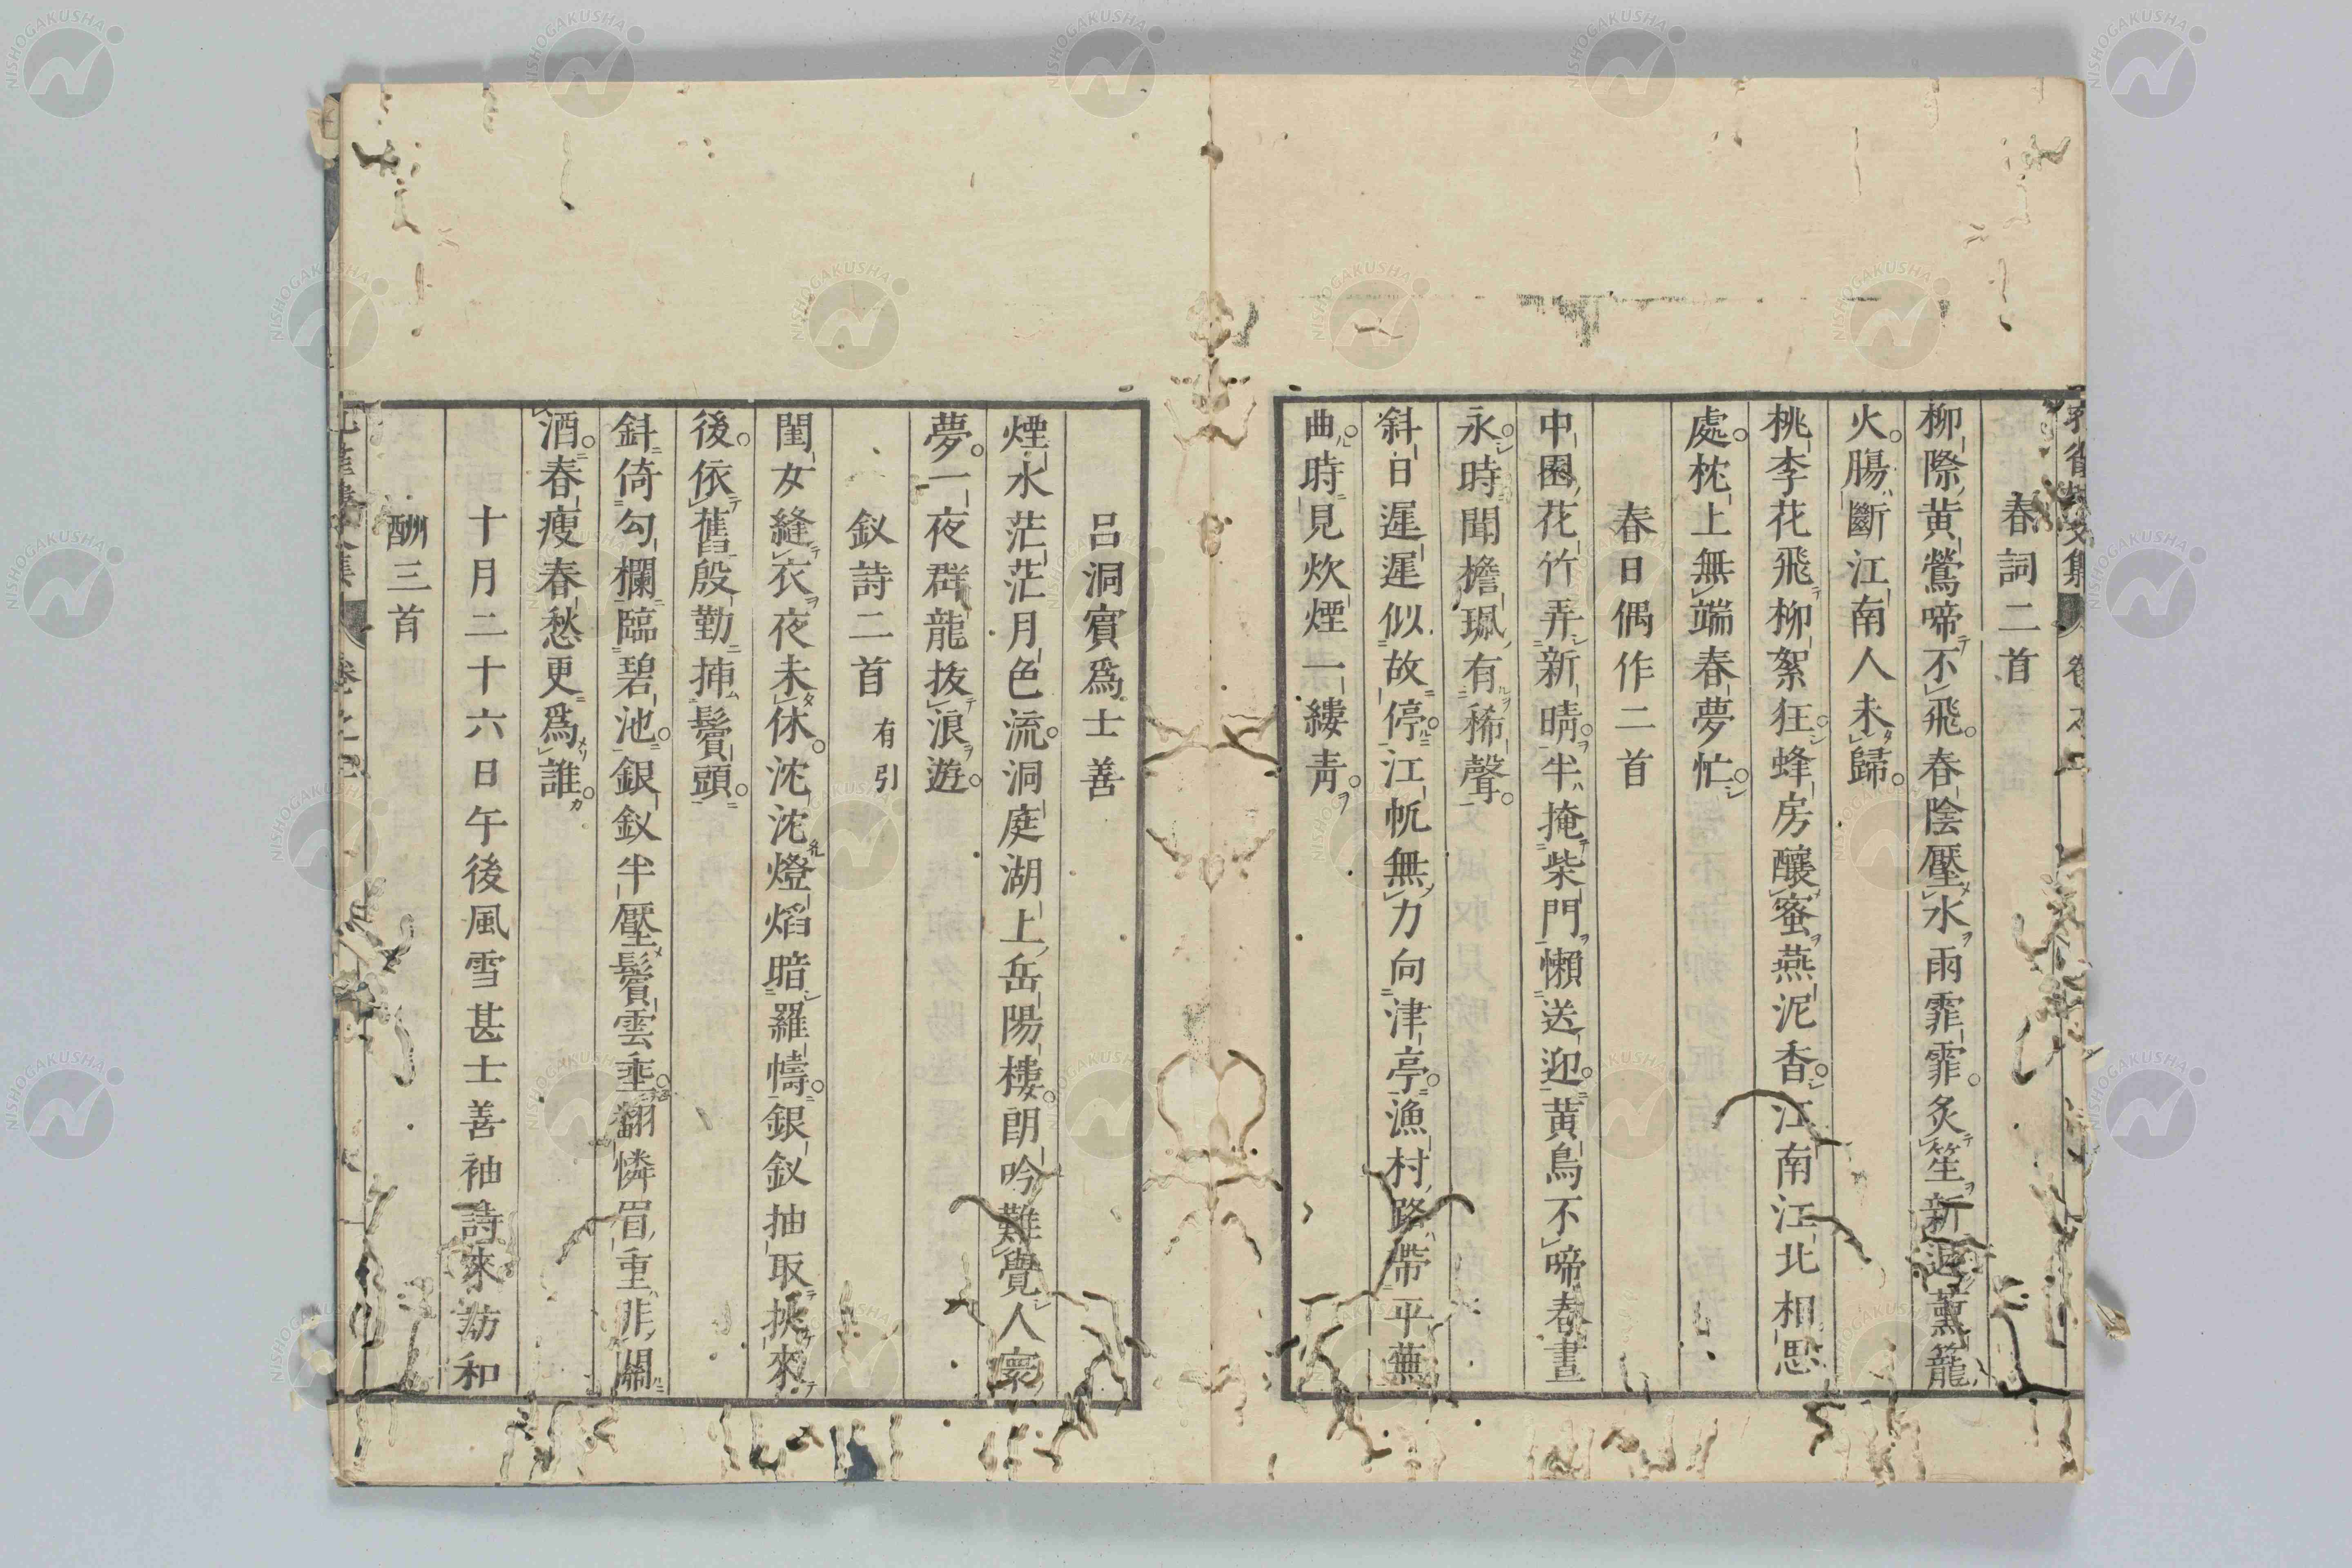 春詞二首
柳際黃鶯啼不飛。春陰壓水雨霏霏。炙笙新退薰籠
火。腸斷江南人未歸。
桃李花飛柳絮狂。蜂房釀蜜燕泥香。江南江北相思
處。枕上無端春夢忙。
春日偶作二首
中園花竹弄新晴。半掩柴門懶送迎。黃鳥不啼春晝
永。時聞檐珮有稀聲。
斜日遲遲似故停。江帆無力向津亭。漁村路帶平蕪
曲。時見炊煙一縷靑。
呂洞賓爲士善
煙水茫茫月色流。洞庭湖上岳陽樓。朗吟難覺人寰
夢。一夜群龍拔浪遊。
釵詩二首 有引
閨女縫衣夜未休。沈沈燈焰暗羅幬。銀釵抽取挾來
後。依舊殷勤揷鬢頭。
斜倚勾欄臨碧池。銀釵半壓鬢雲垂。翻憐眉重非關
酒。春瘦春愁更爲誰。
十月二十六日午後風雪甚士善袖詩來訪和
酬三首
NISHOGAKUSHA